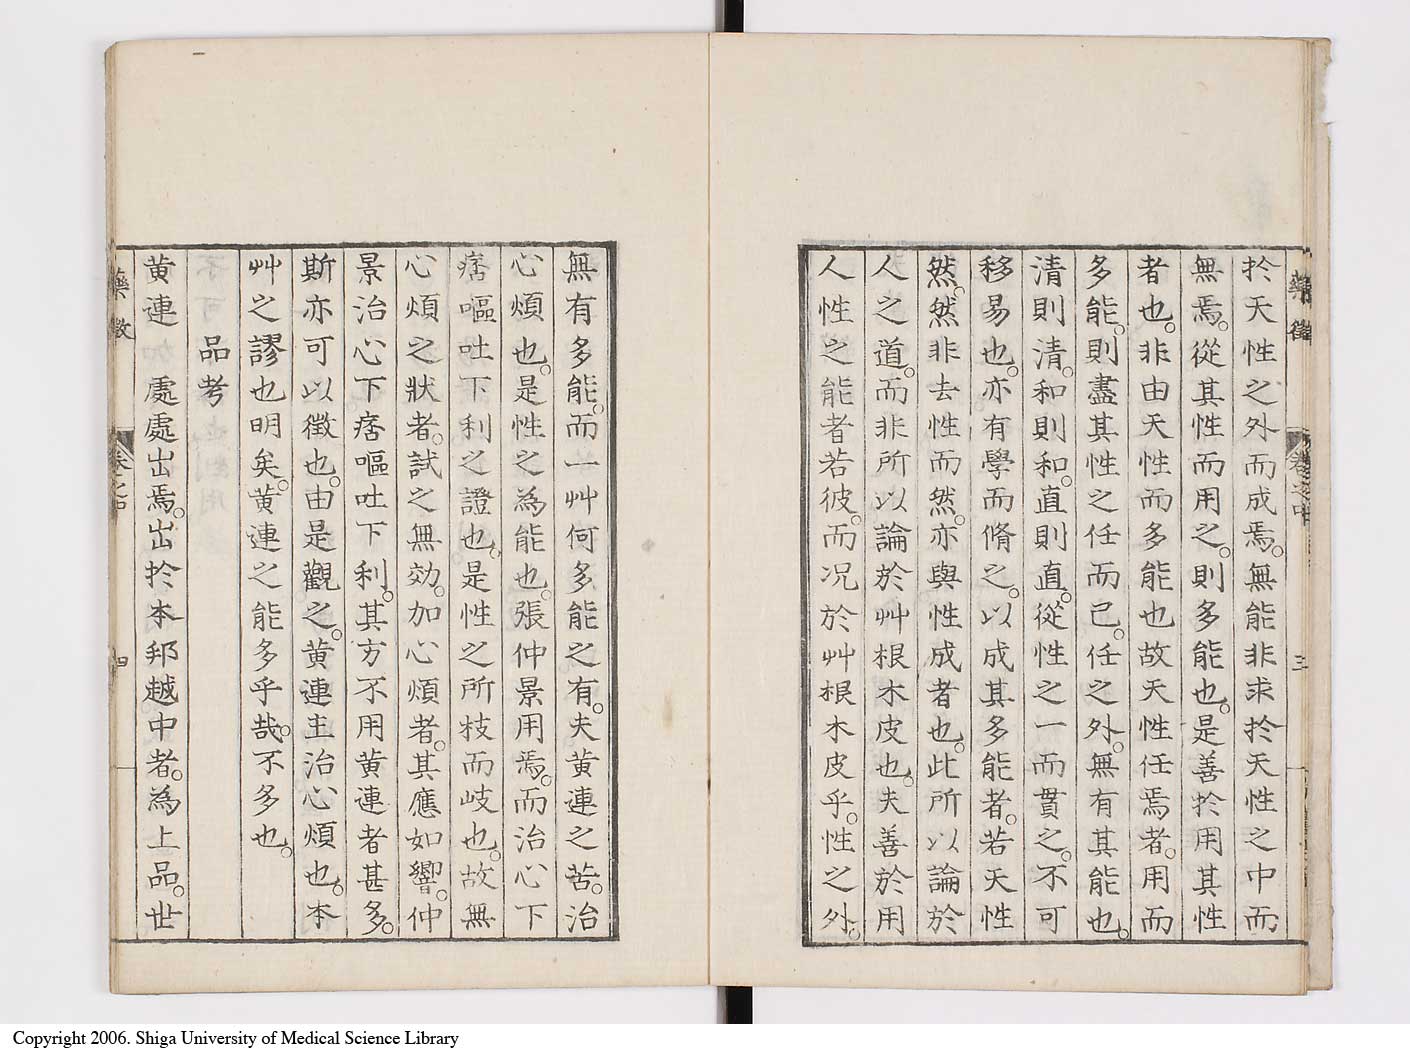 藥徵
卷之中
三
於天性之外而成焉。無能非求於天性之中而
無焉。從其性而用之。則多能也。是善於用其性
者也。非由天性而多能也故天性任焉者。用而
多能。則盡其性之任而已。任之外。無有其能也。
清則清。和則和。直則直。從性之一而貫之。不可
移易也。亦有學而脩之。以成其多能者。若天性
然。然非去性而然。亦與性成者也。此所以論於
人之道。而非所以論於艸根木皮也。夫善於用
人性之能者若彼。而况於艸根木皮乎。性之外。
無有多能。而一艸何多能之有。夫黃連之苦。治
心煩也。是性之為能也。張仲景用焉。而治心下
痞嘔吐下利之證也。是性之所枝而岐也。故無
心煩之狀者。試之無効。加心煩者。其應如響。仲
景治心下痞嘔吐下利。其方不用黃連者甚多。
斯亦可以徵也。由是觀之。黃連主治心煩也。本
艸之謬也明矣。黃連之能多乎哉。不多也。
品考
黃連 處處出焉。出於本邦越中者。為上品。世
藥徵
四
Copyright 2006. Shiga University of Medical Science Library